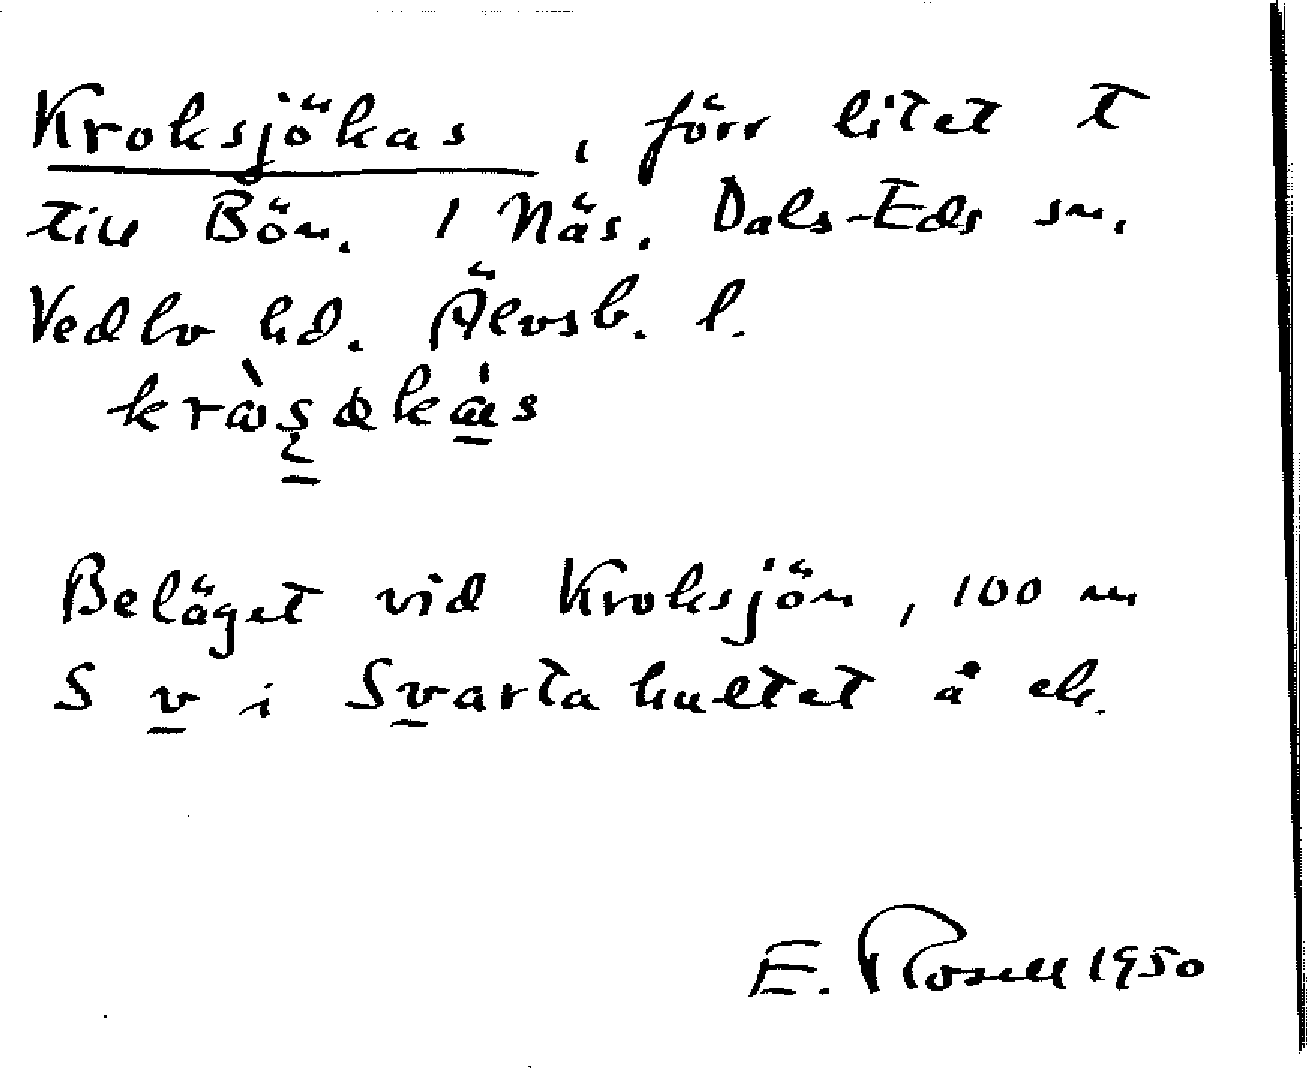 Kroksjökas, förr litet t
till Bön. 1 Näs. Dals-Eds sn.
Vedbo hd. Älvsb. l.
Beläget vid Kroksjön, 100 m
S v i Svartahultet å ek.
E. Rosell 1950